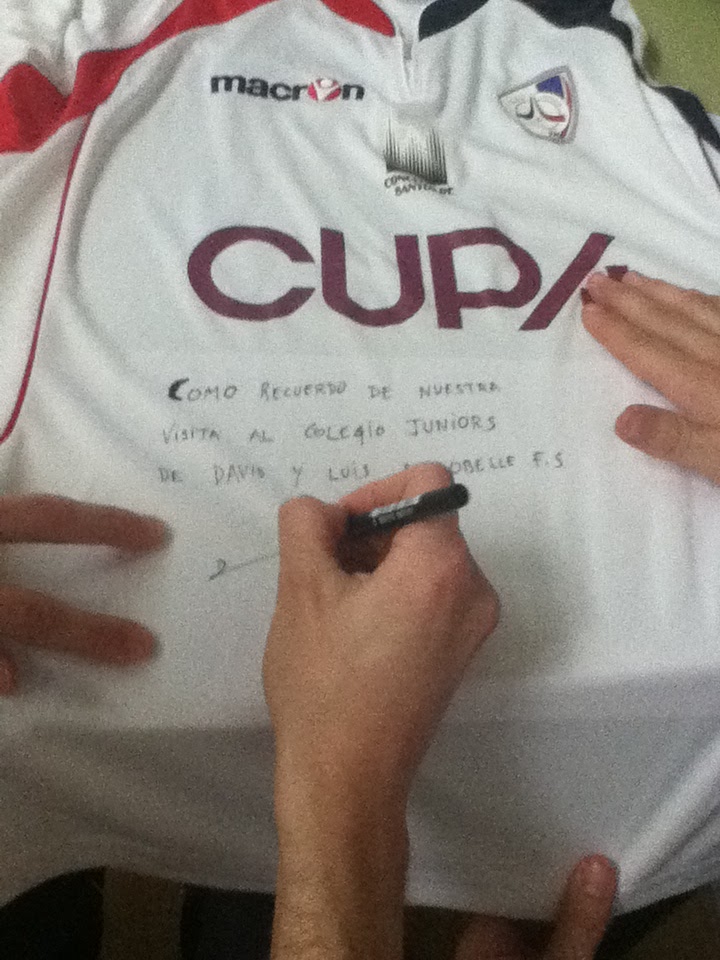 macron
CUPA
COMO RECUERDO DE NUESTRA
VISITA AL COLEGIO JUNIORS
DE DAVID Y LUIS F.S